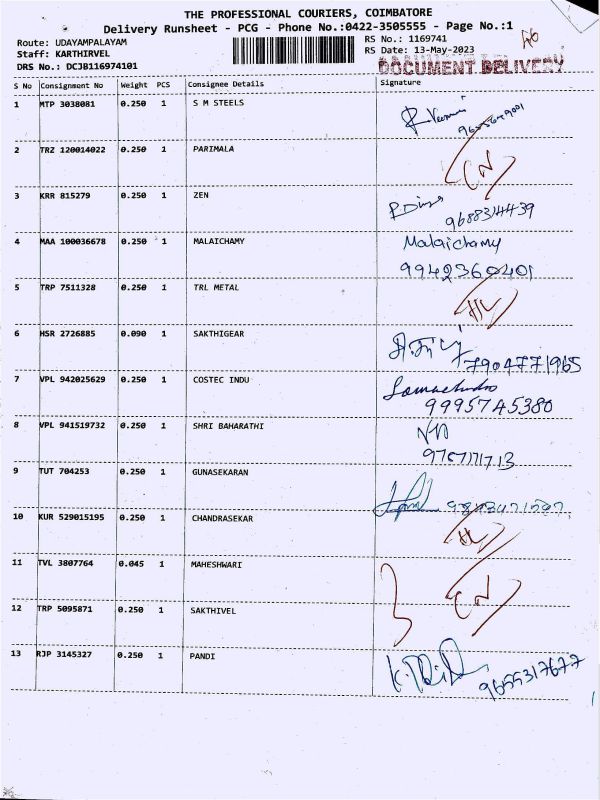 THE PROFESSIONAL COURIERS, COIMBATORE
Delivery Runsheet - PCG - Phone No.:0422-3505555 - Page No.:1
Route: UDAYAMPALAYAM RS No.: 1169741
Staff: KARTHIRVEL RS Date: 13-May-2023
DRS No.: DCJB116974101 DOCUMENT DELIVERY
S No Consignment No Weight PCS Consignee Details Signature
1 MTP 3038081 0.250 1 S M STEELS
2 TRZ 120014022 0.250 1 PARIMALA
3 KRR 815279 0.250 1 ZEN
9688314439
4 MAA 100036678 0.250 1 MALAICHAMY Malaichamy
9942360401
5 TRP 7511328 0.250 1 TRL METAL
6 HSR 2726885 0.090 1 SAKTHIGEAR
7904771965
7 VPL 942025629 0.250 1 COSTEC INDU
9995745380
8 VPL 941519732 0.250 1 SHRI BAHARATHI
9787171713
9 TUT 704253 0.250 1 GUNASEKARAN
10 KUR 529015195 0.250 1 CHANDRASEKAR
11 TVL 3807764 0.045 1 MAHESHWARI
12 TRP 5095871 0.250 1 SAKTHIVEL
13 RJP 3145327 0.250 1 PANDI
9655317677